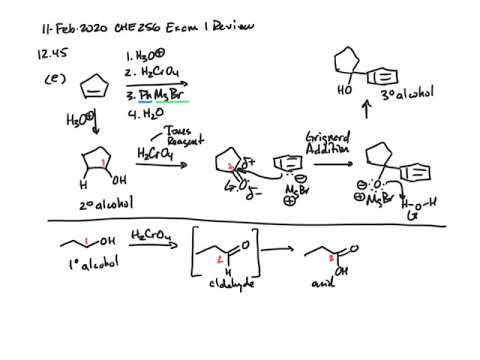 11-Feb-2020 CHE256 Exam 1 Review
12.45
(e)
1. H₃O⊕
2. H₂CrO₄
3. PhMgBr
4. H₂O
HO
3° alcohol
H₃O⊕
Jones
Reagent
H₂CrO₄
Grignard
Addition
1
H
OH
2° alcohol
2
δ+
O
δ-
⊖
MgBr
⊕
O
⊖
⊕
MgBr
H-O-H
1
OH
1° alcohol
H₂CrO₄
2
O
H
aldehyde
3
O
OH
acid